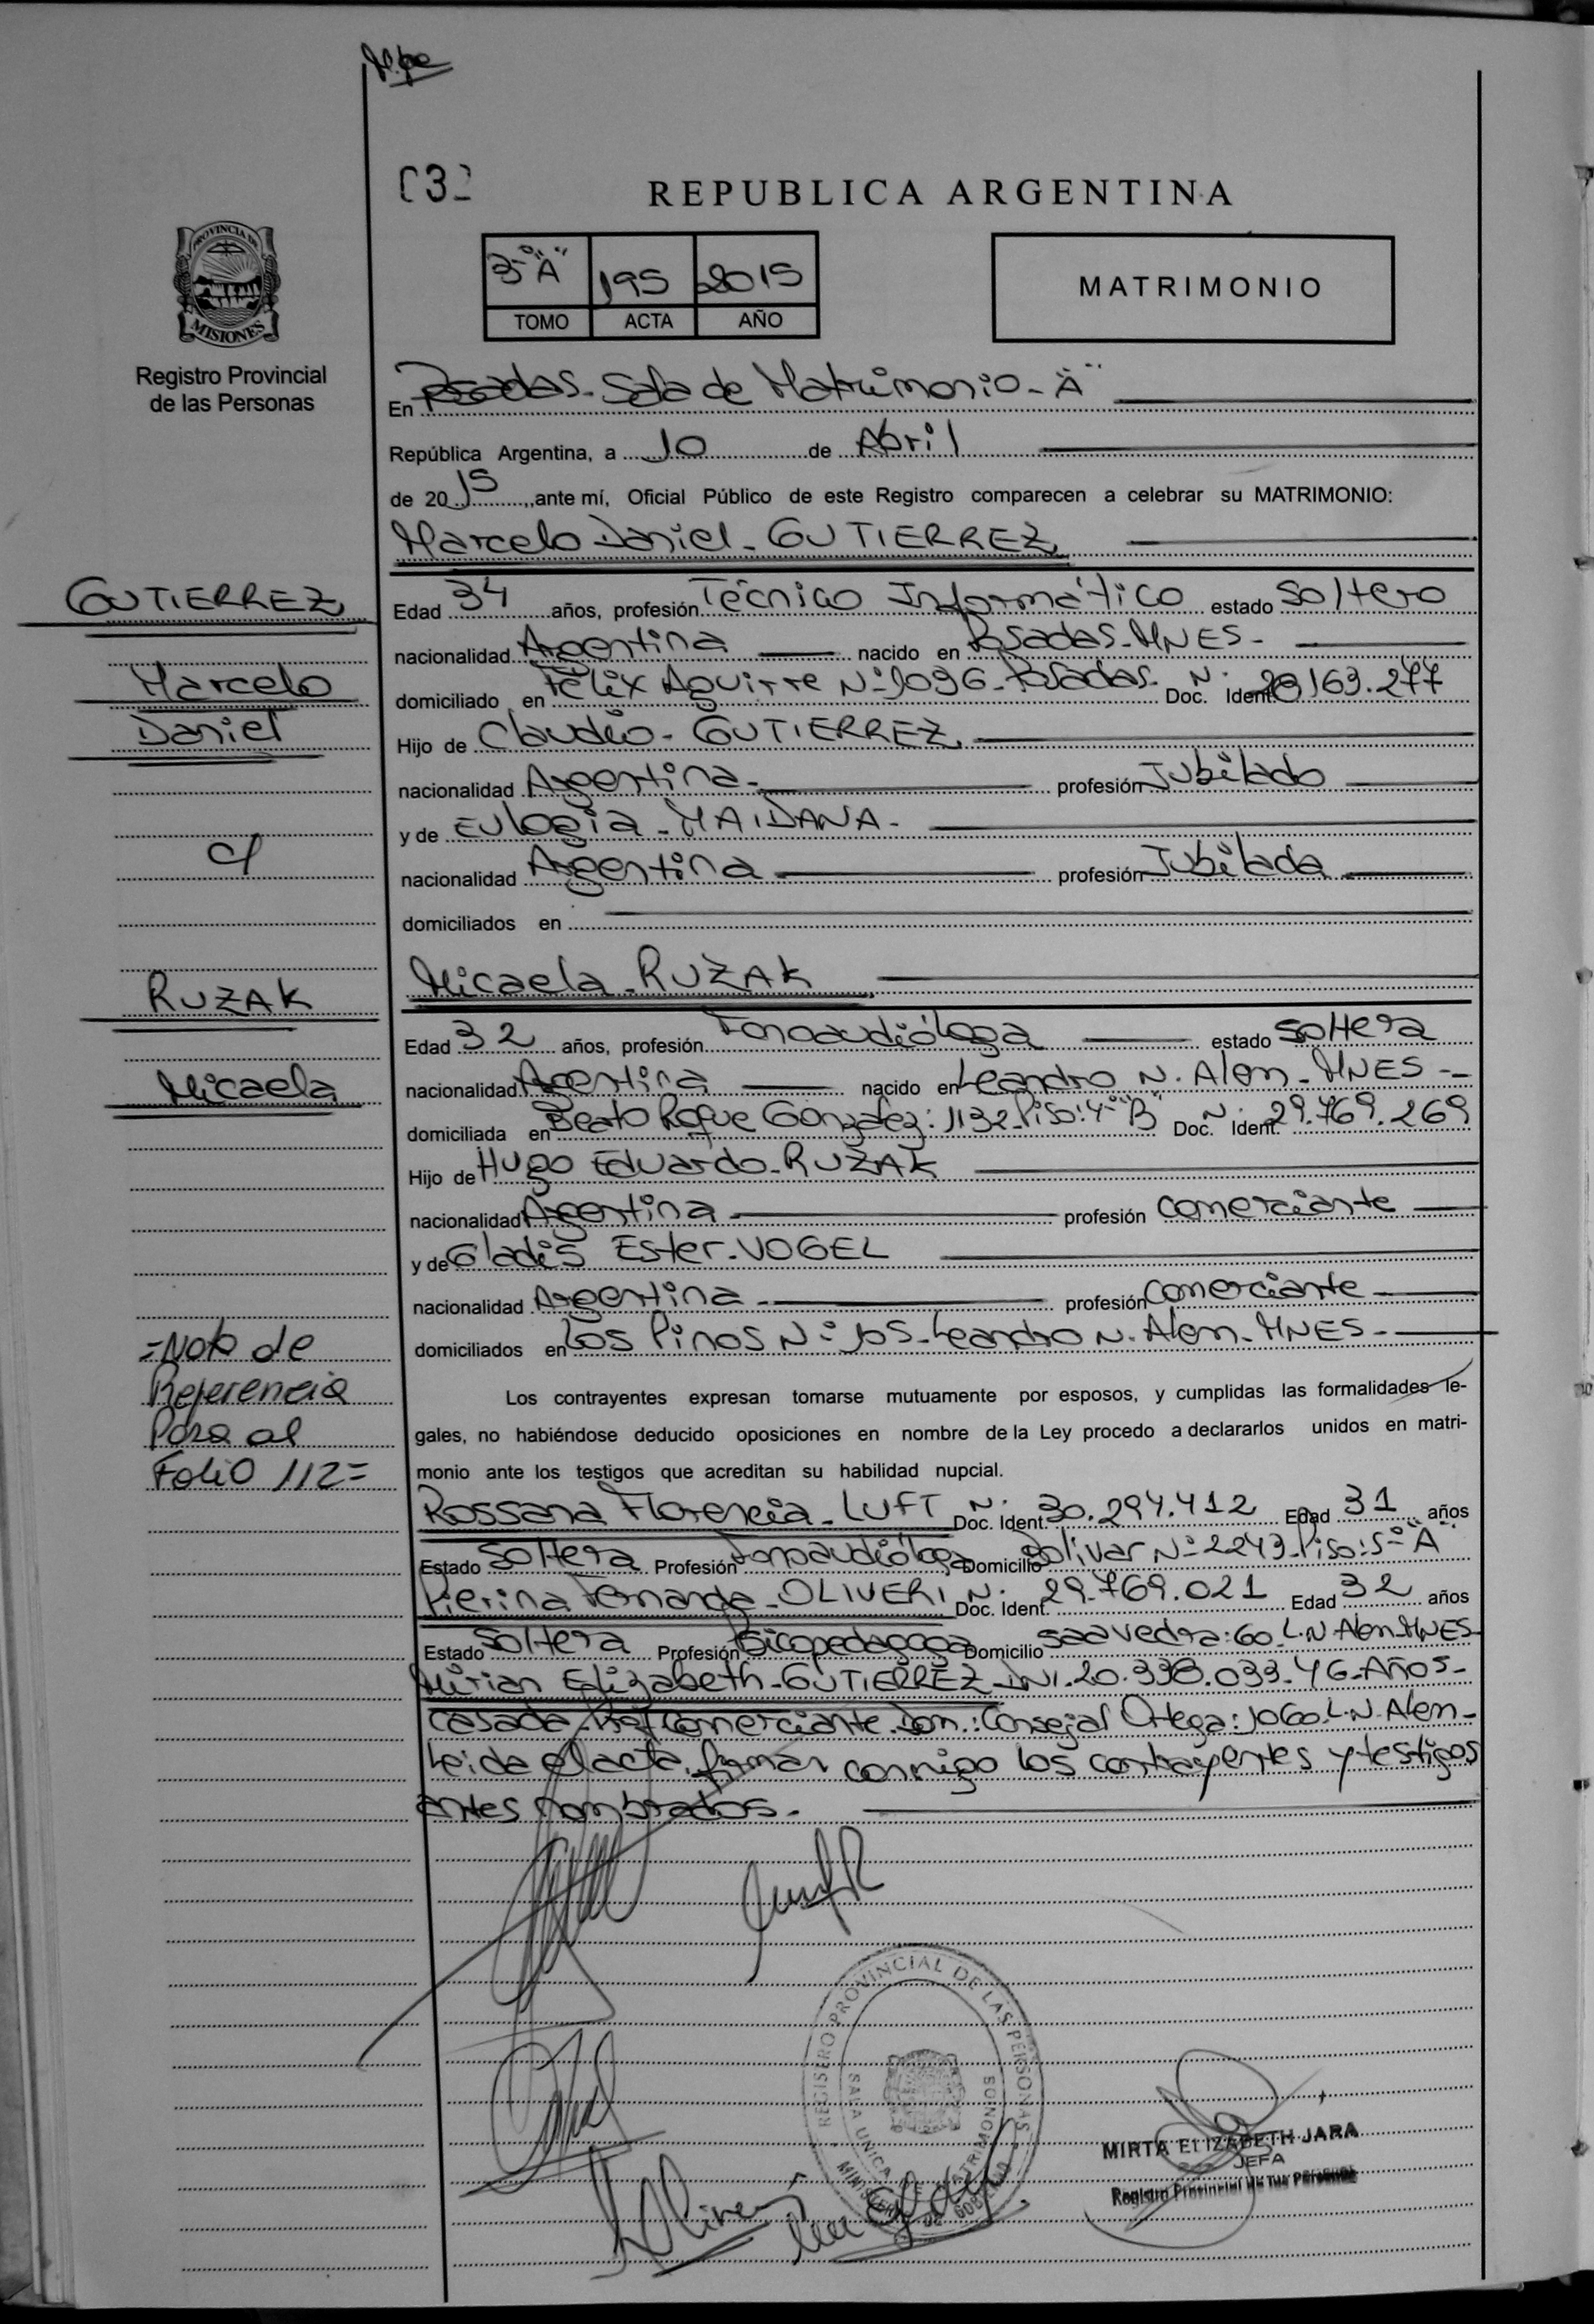 REPUBLICA ARGENTINA
PROVINCIA DE
MISIONES
Registro Provincial
de las Personas
3-°"A" 195 2015
TOMO ACTA AÑO
MATRIMONIO
En Posadas- Sala de Matrimonio-"A"
República Argentina, a 10 de Abril
de 2015, ante mí, Oficial Público de este Registro comparecen a celebrar su MATRIMONIO:
Marcelo Daniel- GUTIERREZ
GUTIERREZ
Marcelo
Daniel
c/
RUZAK
Micaela
Edad 34 años, profesión Técnico Informático estado soltero
nacionalidad Argentina nacido en Posadas-MNES-
domiciliado en Félix Aguirre N°1096-Posadas- Doc. Ident. N° 163.277
Hijo de Claudio- GUTIERREZ
nacionalidad Argentina- profesión Jubilado
y de Eulogia- MAIDANA-
nacionalidad Argentina profesión Jubilada
domiciliados en
Micaela-RUZAK
Edad 32 años, profesión Fonoaudióloga estado soltera
nacionalidad Argentina nacido en Leandro N. Alem-MNES-
domiciliada en Beato Roque González: 1132-Piso:4-°"B" Doc. Ident. N° 29.769.269
Hijo de Hugo Eduardo-RUZAK
nacionalidad Argentina profesión comerciante
y de Gladis Ester-VOGEL
nacionalidad Argentina- profesión comerciante
domiciliados en Los Pinos N°105-Leandro N. Alem-MNES-
=Nota de
Referencia
Para al
Folio 112=
Los contrayentes expresan tomarse mutuamente por esposos, y cumplidas las formalidades le-
gales, no habiéndose deducido oposiciones en nombre de la Ley procedo a declararlos unidos en matri-
monio ante los testigos que acreditan su habilidad nupcial.
Rossana Florencia-LUFT Doc. Ident. N° 30.294.412 Edad 31 años
Estado soltera Profesión Fonoaudióloga Domicilio Bolivar N°2243-Piso:5-°"A"
Pierina Fernanda-OLIVERI Doc. Ident. N° 29.769.021 Edad 32 años
Estado soltera Profesión Psicopedagoga Domicilio Saavedra:60-L.N Alem MNES-
Mirian Elizabeth-GUTIERREZ-DNI-20.338.033-46-Años-
casada-Prof Comerciante.Dom.:Consejal Ortega:1060-L.N.Alem-
Leida el acta, firman conmigo los contrayentes y testigos
antes nombrados.-
REGISTRO PROVINCIAL DE LAS PERSONAS
SALA UNICA DE MATRIMONIOS
MINISTERIO DE GOBIERNO
MIRTA ELIZABETH JARA
JEFA
Registro Provincial de las Personas